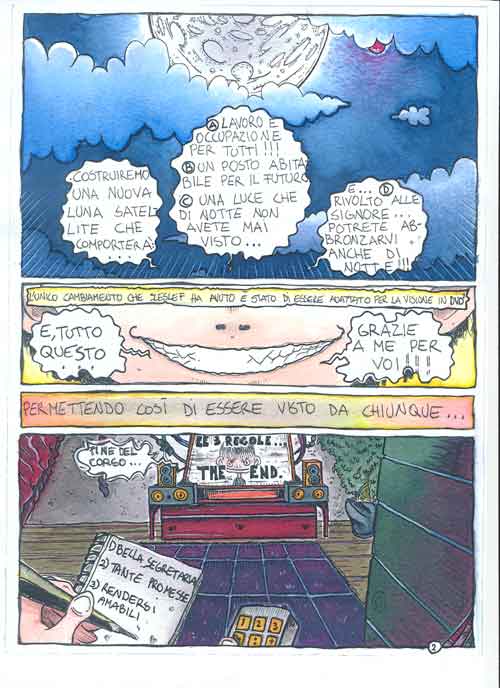 COSTRUIREMO
UNA NUOVA
LUNA SATEL
LITE CHE
COMPORTERÀ:
A LAVORO E
OCCUPAZIONE
PER TUTTI!!!
B UN POSTO ABITA
BILE PER IL FUTURO
C UNA LUCE CHE
DI NOTTE NON
AVETE MAI
VISTO...
E... D
RIVOLTO ALLE
SIGNORE...
POTRETE AB-
BRONZARVI
ANCHE DI
NOTTE!!!
L'UNICO CAMBIAMENTO CHE HA AVUTO E STATO DI ESSERE ADATTATO PER LA VISIONE IN DVD
E, TUTTO
QUESTO
GRAZIE
A ME PER
VOI!!!
PERMETTENDO COSÌ DI ESSERE VISTO DA CHIUNQUE...
FINE DEL
CORSO...
LE 3 REGOLE...
THE END.
1) BELLA SEGRETARIA
2) TANTE PROMESSE
3) RENDERSI
AMABILI
1 2 3
2